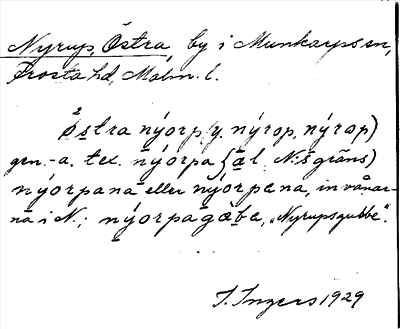 Nyrup, Östra, by i Munkarps sn,
Frosta hd, Malm. l.
Östra nýorp (y. nýrop, nýrop)
gen. -a. t.ex. nýorpa (āl N:s gräns)
nýorpana eller nýorpena, invånar-
na i N.; nýorpagæba, „Nyrupsgubbe".
I. Ingers 1929